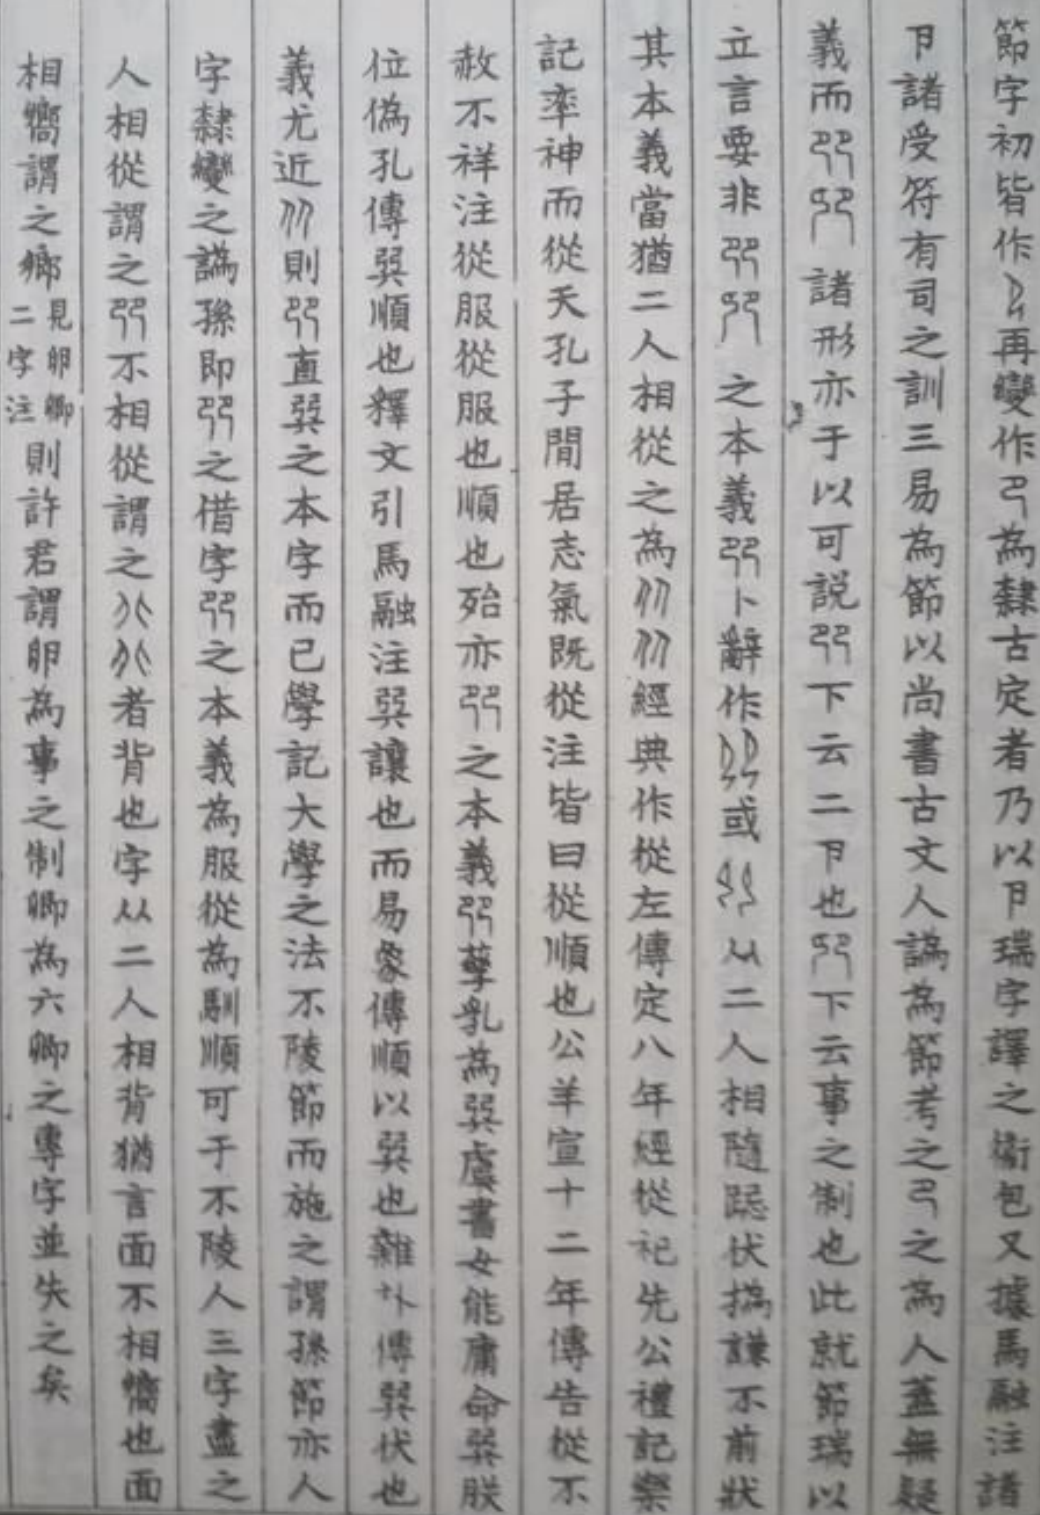 節字初皆作再變作㔾為隸古定者乃以卪瑞字譯之衞包又據馬融注諸
卪諸受符有司之訓三易為節以尚書古文人譌為節考之㔾之為人蓋無疑
義而諸形亦于以可説𠨎下云二卪也下云事之制也此就節瑞以
立言要非之本義𠨎卜辭作或从二人相隨跽伏撝謙不前狀
其本義當猶二人相從之為从从經典作從左傳定八年經從祀先公禮記樂
記率神而從天孔子閒居志氣既從注皆曰從順也公羊宣十二年傳告從不
赦不祥注從服從服也順也殆亦𠨎之本義𠨎孳乳為巽虞書女能庸命巽朕
位偽孔傳巽順也釋文引馬融注巽讓也而易彖傳順以巽也雜卦傳巽伏也
義尤近从則𠨎直巽之本字而已學記大學之法不陵節而施之謂孫節亦人
字隸變之譌孫即𠨎之借字𠨎之本義為服從為馴順可于不陵人三字盡之
人相從謂之𠨎不相從謂之者背也字从二人相背猶言面不相嚮也面
相嚮謂之鄉
見卯卿
二字注
則許君謂卯為事之制卿為六卿之專字並失之矣